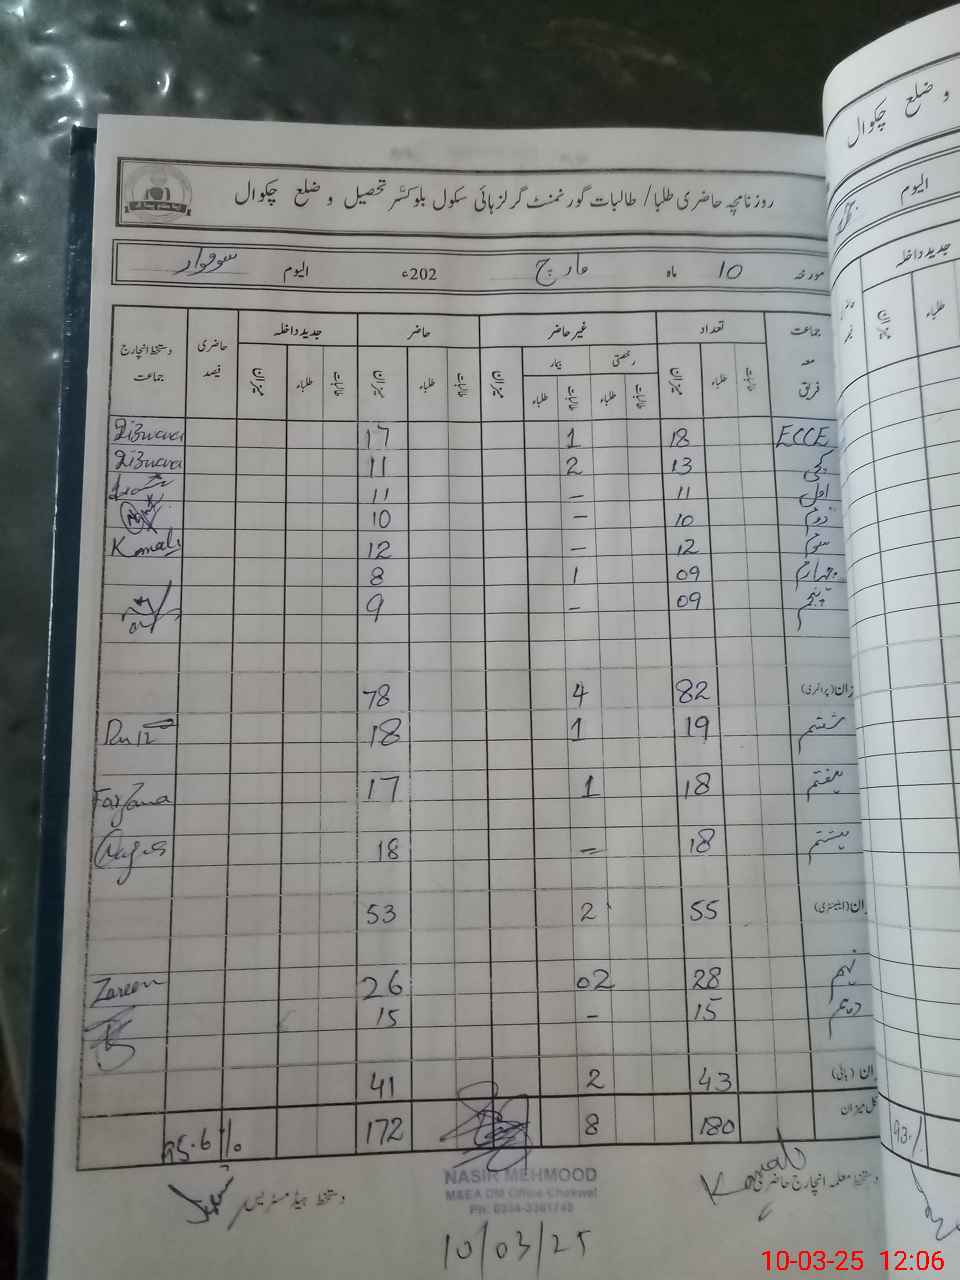 روزنامچہ حاضری طلبا/ طالبات گورنمنٹ گرلز ہائی سکول بلوکسر تحصیل و ضلع چکوال
مورخہ 10 ماہ مارچ 202ء الیوم سوموار
جماعت معہ فریق تعداد غیر حاضر حاضر جدید داخلہ حاضری فیصد دستخط انچارج جماعت
رخصتی بیمار
میزان طلباء طالبات میزان طلباء طالبات طلباء طالبات میزان طلباء طالبات میزان طلباء طالبات
ECCE 18 1 17
کچی 13 2 11
اول 11 – 11
دوم 10 – 10
سوم 12 – 12 Komal
چہارم 09 1 8
پنجم 09 – 9
زان (پرائمری) 82 4 78
ششم 19 1 18
ہفتم 18 1 17 Farzana
ہشتم 18 – 18
ان (ایلیمنٹری) 55 2 53
نہم 28 02 26 Zareen
دہم 15 – 15
ان (ہائی) 43 2 41
کل میزان 180 8 172 95.6%
دستخط معلمہ انچارج حاضری Komal
دستخط ہیڈ مسٹریس
NASIR MEHMOOD
M&EA DM Office Chakwal
10/03/25
و ضلع چکوال
الیوم
جدید داخلہ
طلباء
میزان
93%
10-03-25 12:06